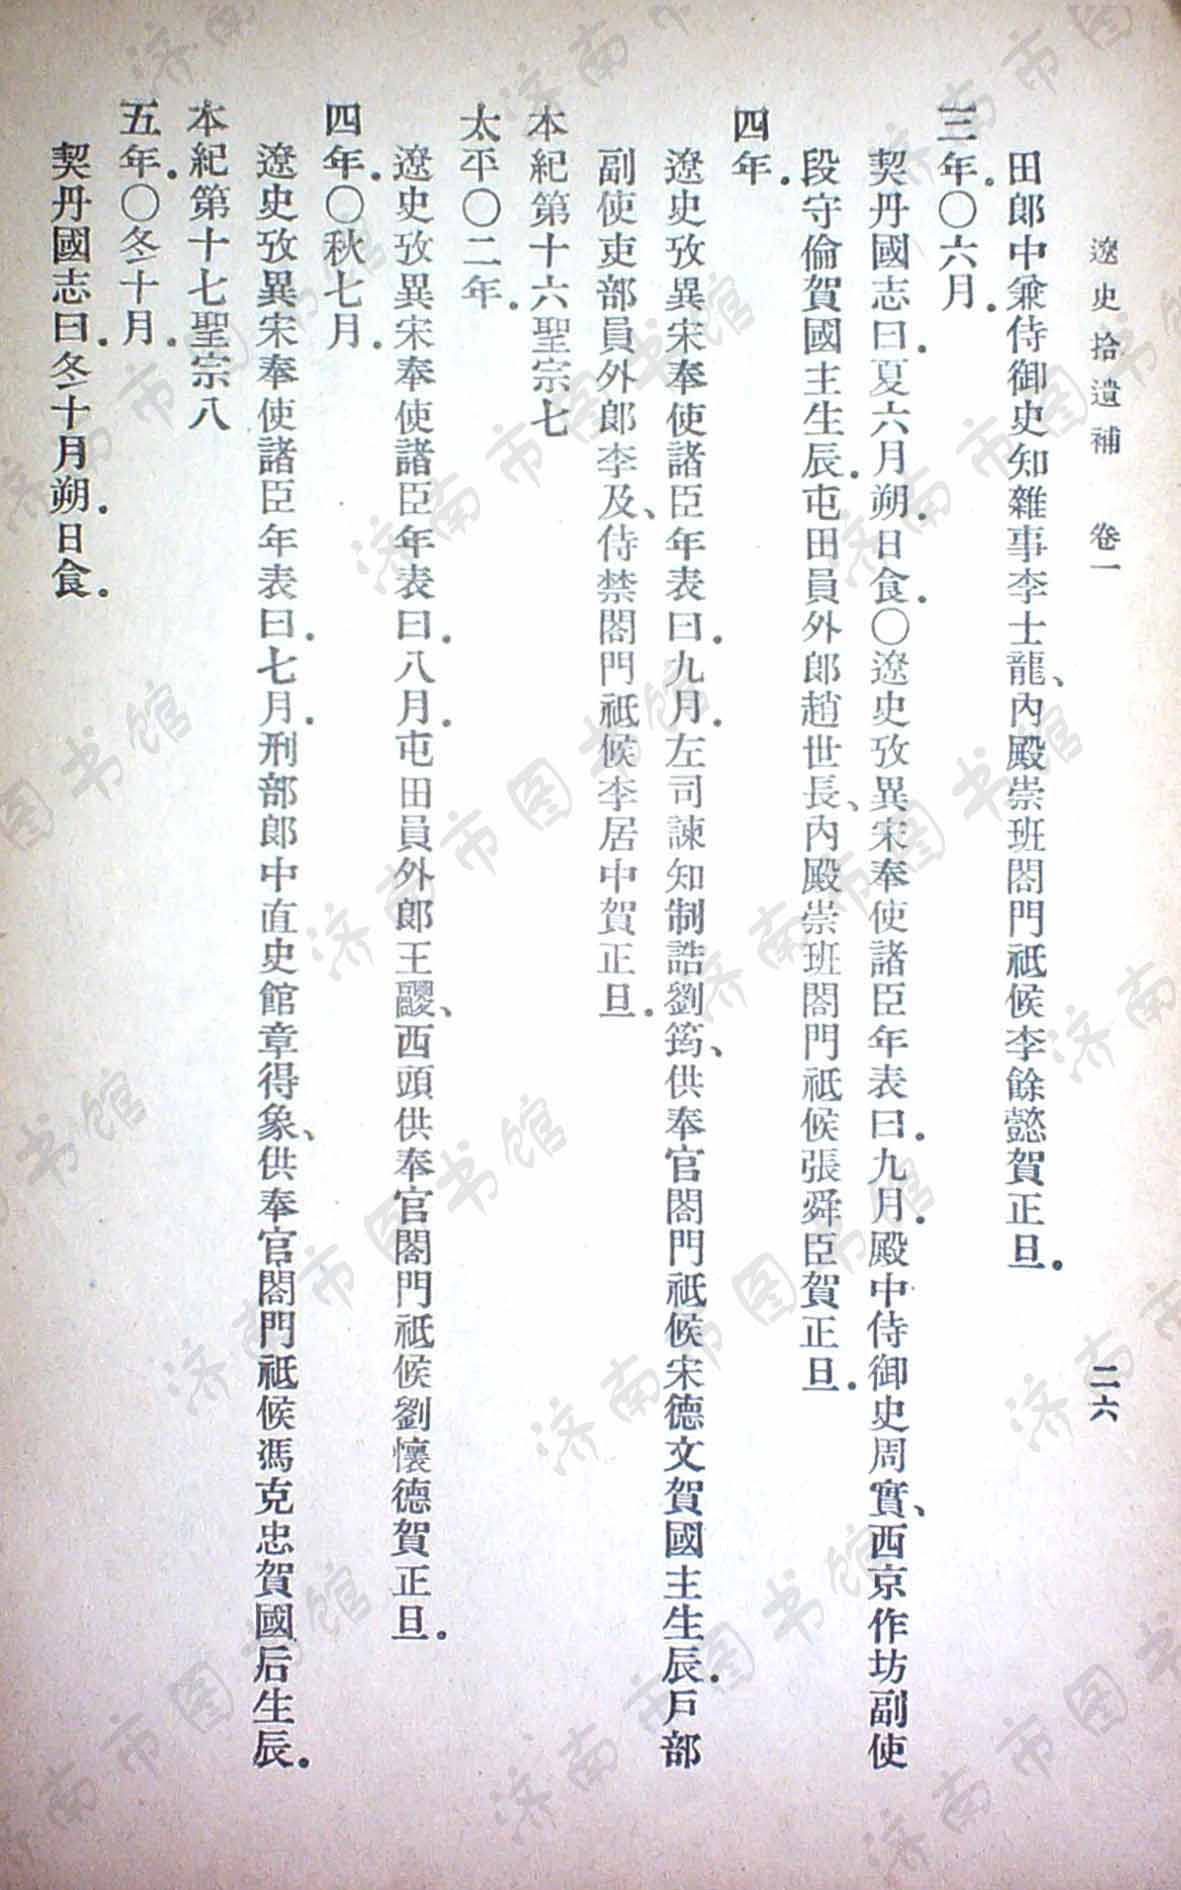 遼史拾遺補　卷一　二六
田郎中兼侍御史知雜事李士龍、內殿崇班閤門祗候李餘懿賀正旦.
三年.〇六月.
契丹國志曰.夏六月朔.日食.〇遼史攷異宋奉使諸臣年表曰.九月.殿中侍御史周實、西京作坊副使
段守倫賀國主生辰.屯田員外郎趙世長、內殿崇班閤門祗候張舜臣賀正旦.
四年.
遼史攷異宋奉使諸臣年表曰.九月.左司諫知制誥劉筠、供奉官閤門祗候宋德文賀國主生辰.戶部
副使吏部員外郎李及、侍禁閤門祗候李居中賀正旦.
本紀第十六聖宗七
太平〇二年.
遼史攷異宋奉使諸臣年表曰.八月.屯田員外郎王䢜、西頭供奉官閤門祗候劉懷德賀正旦.
四年.〇秋七月.
遼史攷異宋奉使諸臣年表曰.七月.刑部郎中直史館章得象、供奉官閤門祗候馮克忠賀國后生辰.
本紀第十七聖宗八
五年.〇冬十月.
契丹國志曰.冬十月朔.日食.